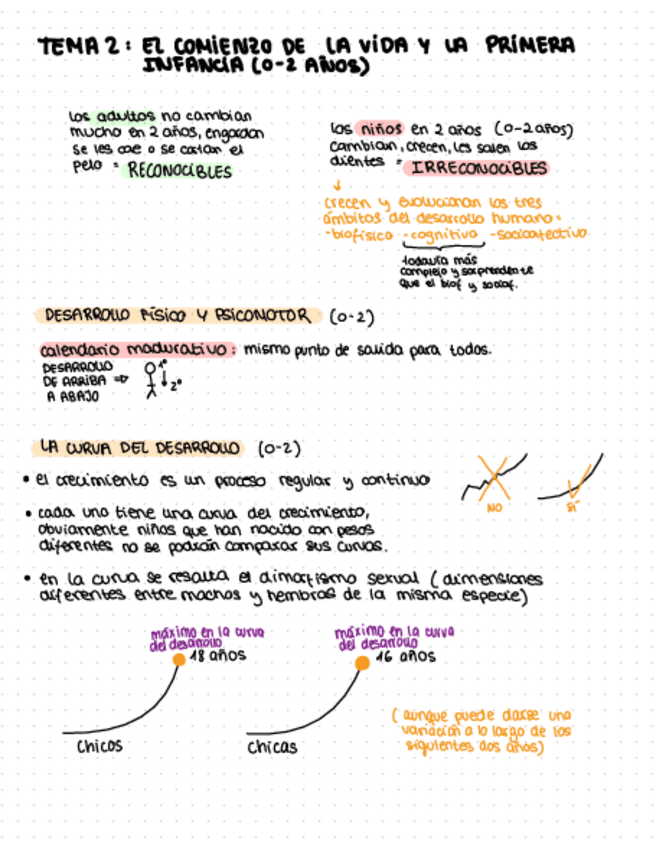 TEMA 2: EL COMIENZO DE LA VIDA Y LA PRIMERA
INFANCIA (0-2 AÑOS)
los adultos no cambian
mucho en 2 años, engordan
se les cae o se cortan el
pelo = RECONOCIBLES
los niños en 2 años (0-2 años)
cambian, crecen, les salen los
dientes = IRRECONOCIBLES
crecen y evolucionan los tres
ámbitos del desarrollo humano:
-biofísico -cognitivo -socioafectivo
todavía más
complejo y sorprendente
que el biof y socioaf.
DESARROLLO FÍSICO Y PSICOMOTOR (0-2)
calendario madurativo: mismo punto de salida para todos.
DESARROLLO
DE ARRIBA =>
A ABAJO
1º
2º
LA CURVA DEL DESARROLLO (0-2)
• el crecimiento es un proceso regular y continuo
NO
SÍ
• cada uno tiene una curva del crecimiento,
obviamente niños que han nacido con pesos
diferentes no se podrán comparar sus curvas.
• en la curva se resalta el dimorfismo sexual (dimensiones
diferentes entre machos y hembras de la misma especie)
máximo en la curva
del desarrollo
18 años
chicos
máximo en la curva
del desarrollo
16 años
chicas
(aunque puede darse una
variación a lo largo de los
siguientes dos años)